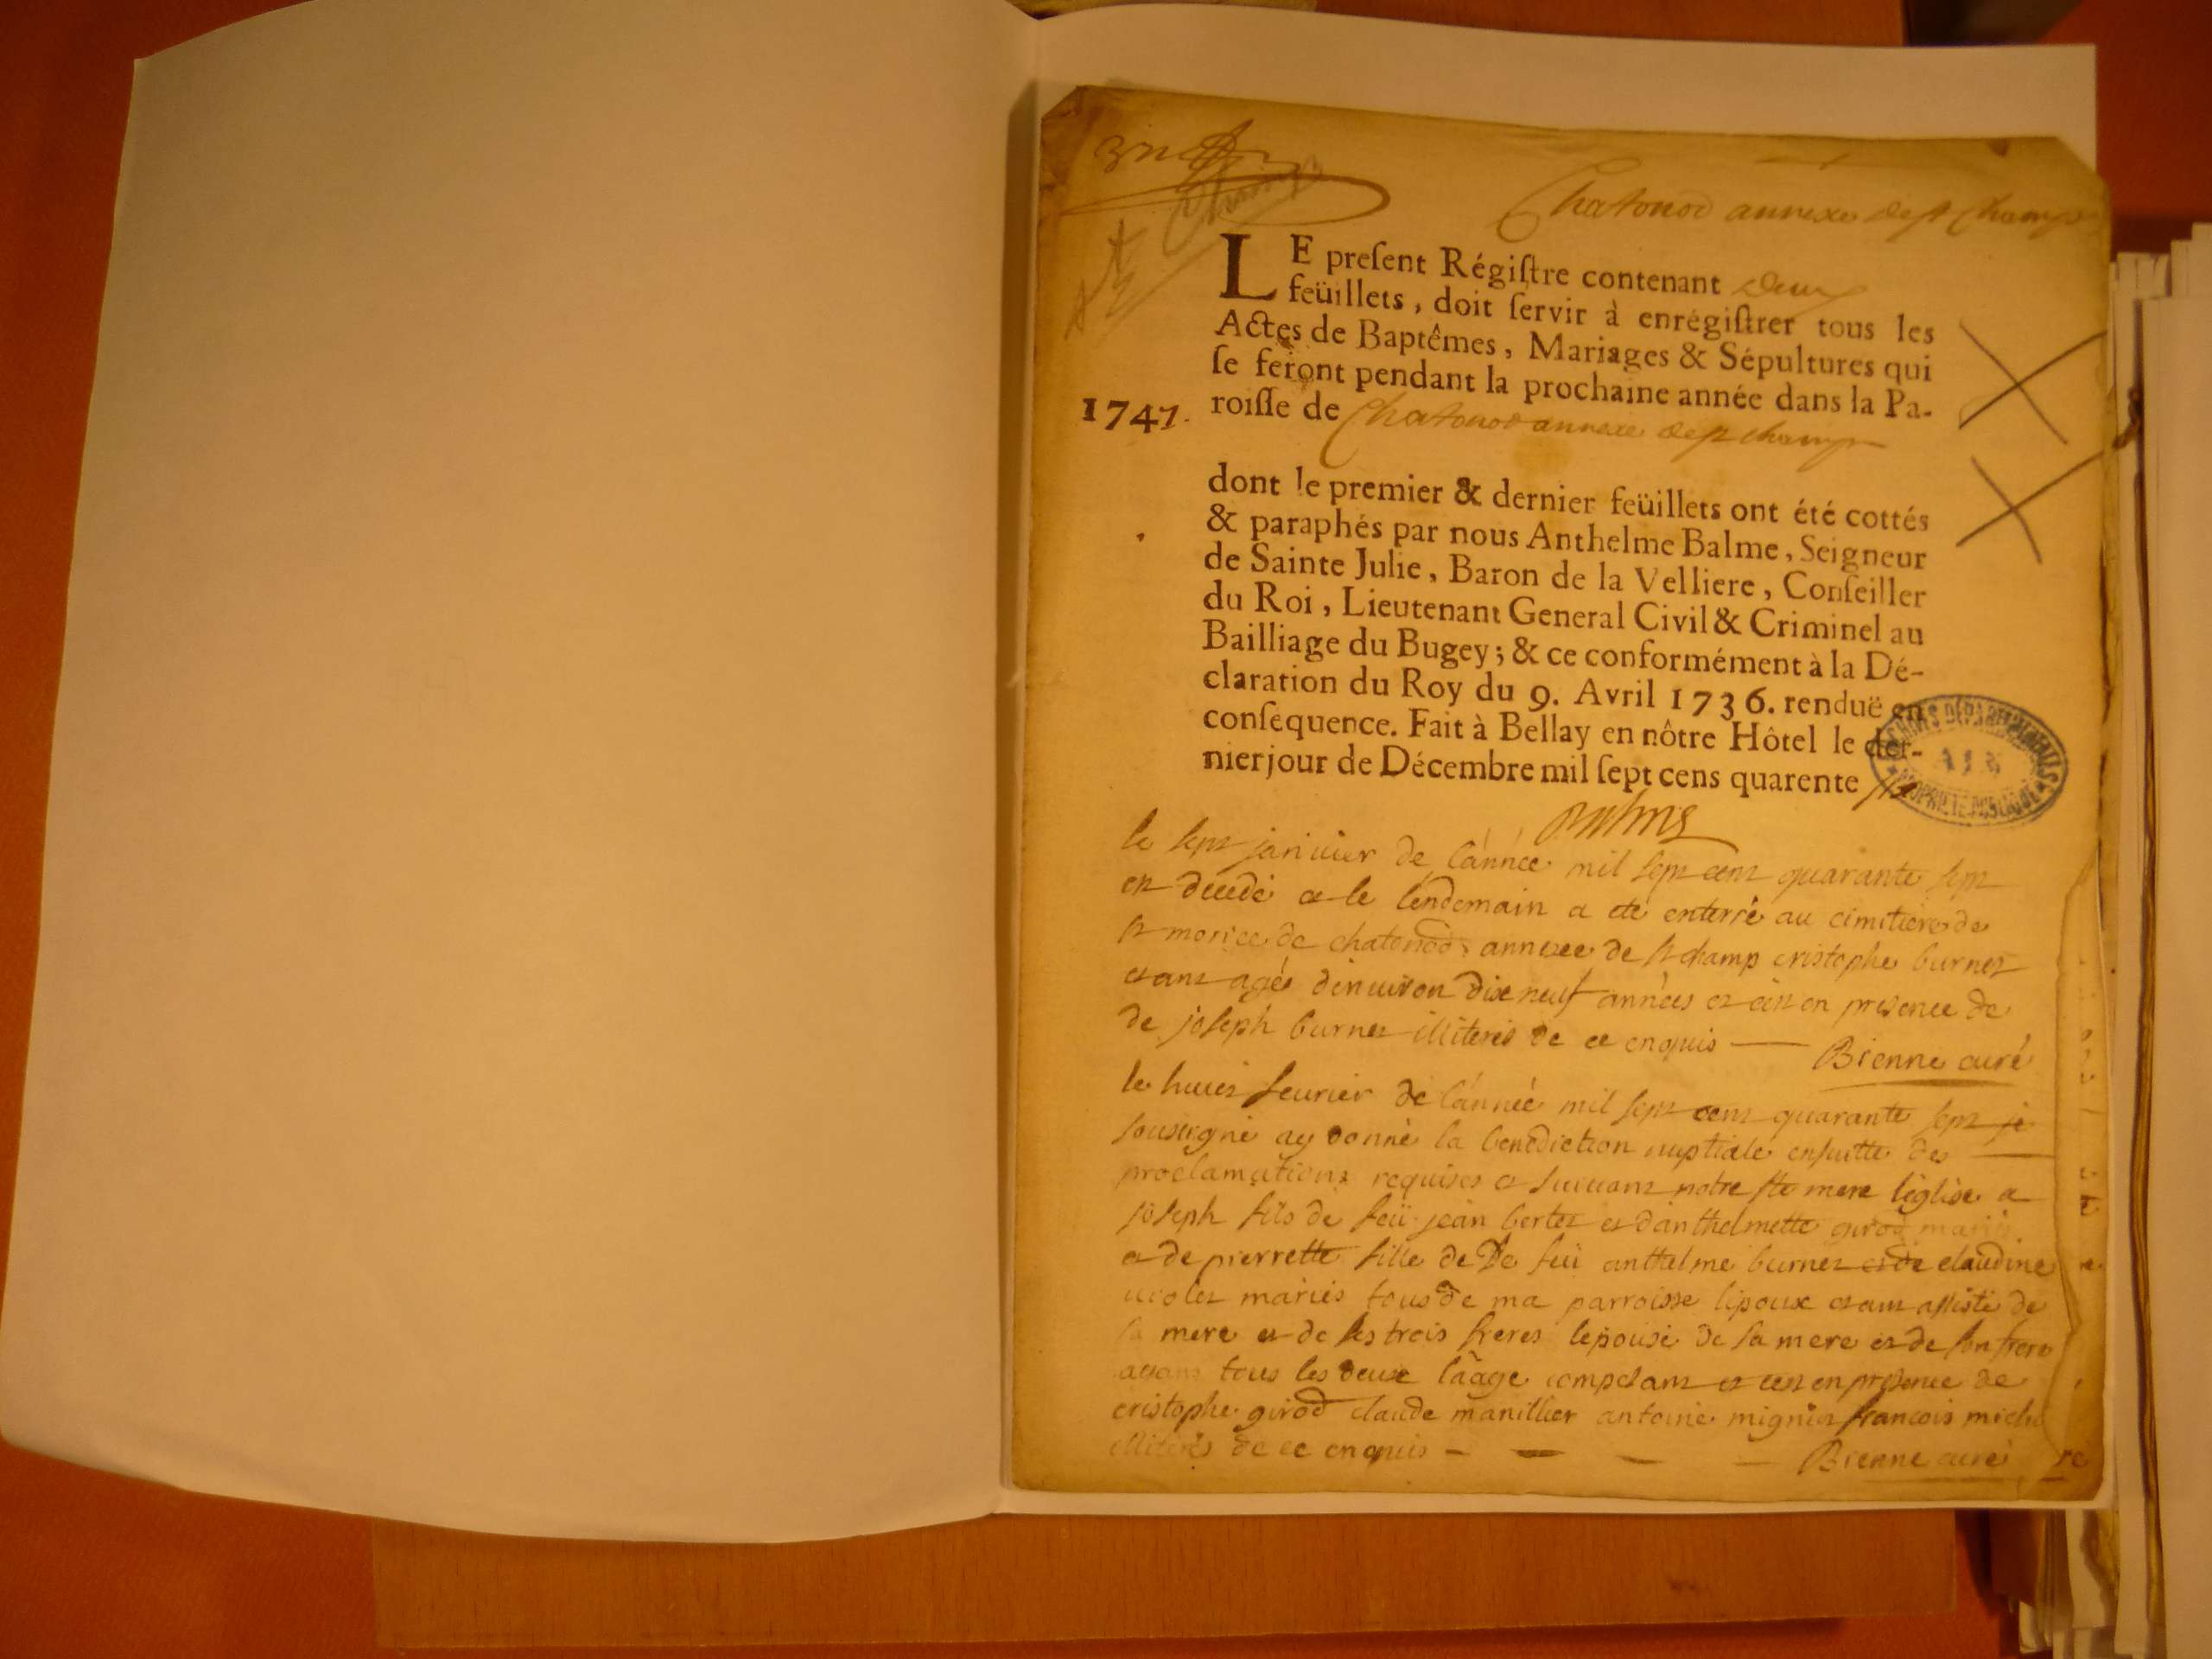 St Champ
Chatonod annexe de st Champ
LE preſent Régiſtre contenant deux
feüillets, doit ſervir à enrégiſtrer tous les
Actes de Baptêmes, Mariages & Sépultures qui
ſe feront pendant la prochaine année dans la Pa-
1747. roiſſe de Chatonod annexe de st champ
dont le premier & dernier feüillets ont été cottés
& paraphés par nous Anthelme Balme, Seigneur
de Sainte Julie, Baron de la Velliere, Conſeiller
du Roi, Lieutenant General Civil & Criminel au
Bailliage du Bugey; & ce conformément à la Dé-
claration du Roy du 9. Avril 1736. renduë en
conſequence. Fait à Bellay en nôtre Hôtel le der-
nier jour de Décembre mil ſept cens quarente six
ARCHIVES DÉPARTEMENTALES
AIN
PROPRIÉTÉ PUBLIQUE
Balme
le sept janvier de l'année mil sept cent quarante sept
est decedé et le lendemain a eté enterré au cimitiere de
st morice de chatonod annexe de st champ cristophe burnet
etant agé d'environ dix neuf années et c'est en presence de
de joseph burnet illiteré de ce enquis — Brenne curé
le huict feurier de l'année mil sept cent quarante sept je
sousigné ay donné la benediction nuptiale ensuitte des
proclamations requises et suivant notre ste mere l'église a
joseph fils de feü jean bertet et d'anthelmette girod mariés
et de pierrette fille de De feü anthelme burnet et de claudine
violet mariés tous de ma parroisse l'époux etant assisté de
sa mere et de ses trois freres l'épouse de sa mere et de son frere
ayant tous les deux l'âage competant et c'est en presence de
cristophe girod claude manillier antoine mignot francois
illiterés de ce enquis — — — — Brenne curé